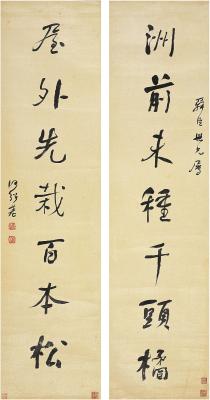 洲前未種千頭橘
屋外先栽百本松
何紹基